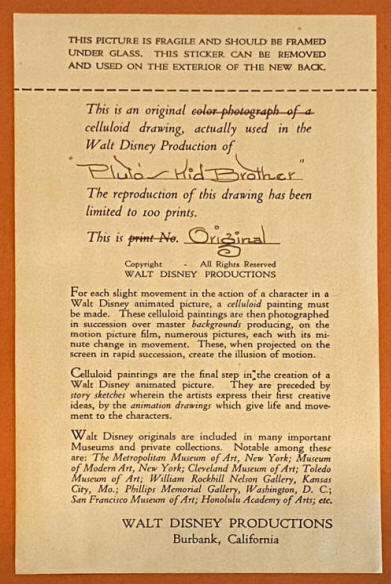 THIS PICTURE IS FRAGILE AND SHOULD BE FRAMED
UNDER GLASS. THIS STICKER CAN BE REMOVED
AND USED ON THE EXTERIOR OF THE NEW BACK.
This is an original color photograph of a
celluloid drawing, actually used in the
Walt Disney Production of
"Pluto's Kid Brother"
The reproduction of this drawing has been
limited to 100 prints.
This is print No. Original
Copyright - All Rights Reserved
WALT DISNEY PRODUCTIONS
For each slight movement in the action of a character in a
Walt Disney animated picture, a celluloid painting must
be made. These celluloid paintings are then photographed
in succession over master backgrounds producing, on the
motion picture film, numerous pictures, each with its mi-
nute change in movement. These, when projected on the
screen in rapid succession, create the illusion of motion.
Celluloid paintings are the final step in the creation of a
Walt Disney animated picture. They are preceded by
story sketches wherein the artists express their first creative
ideas, by the animation drawings which give life and move-
ment to the characters.
Walt Disney originals are included in many important
Museums and private collections. Notable among these
are: The Metropolitan Museum of Art, New York; Museum
of Modern Art, New York; Cleveland Museum of Art; Toledo
Museum of Art; William Rockhill Nelson Gallery, Kansas
City, Mo.; Phillips Memorial Gallery, Washington, D. C.;
San Francisco Museum of Art; Honolulu Academy of Arts; etc.
WALT DISNEY PRODUCTIONS
Burbank, California